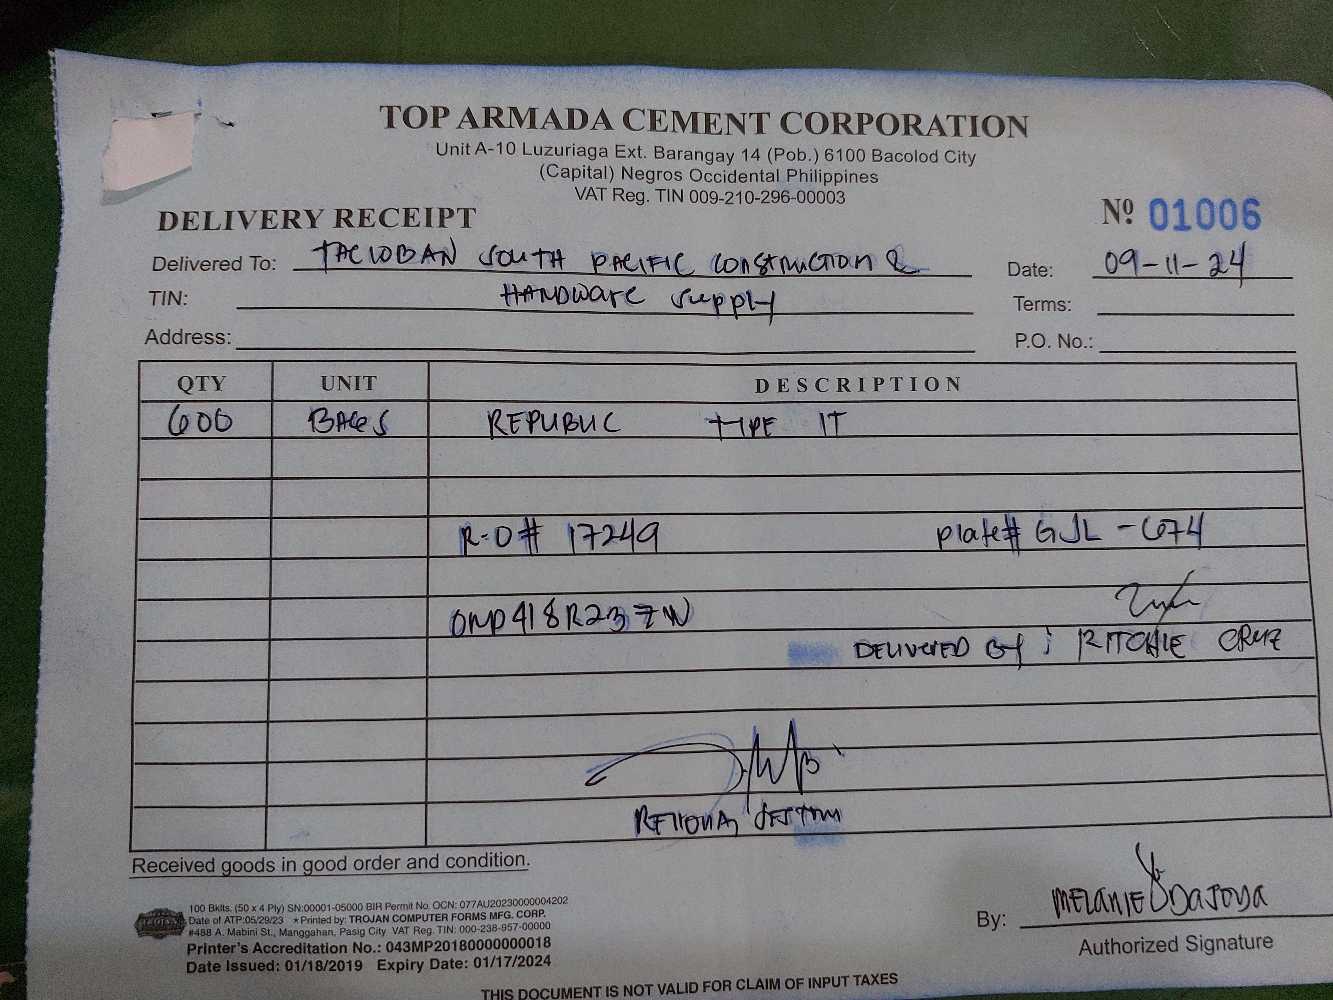 TOP ARMADA CEMENT CORPORATION
Unit A-10 Luzuriaga Ext. Barangay 14 (Pob.) 6100 Bacolod City
(Capital) Negros Occidental Philippines
VAT Reg. TIN 009-210-296-00003
DELIVERY RECEIPT Nº 01006
Delivered To: TACLOBAN SOUTH PACIFIC CONSTRUCTION & Date: 09-11-24
TIN: HARDWARE SUPPLY Terms:
Address: P.O. No.:
QTY UNIT DESCRIPTION
600 BAGS REPUBLIC TYPE 1T
R-O# 17249 Plate# GJL-674
0MD418R237W
DELIVERED BY: RITCHIE CRUZ
Received goods in good order and condition.
100 Bklts. (50 x 4 Ply) SN:00001-05000 BIR Permit No. OCN: 077AU20230000004202
Date of ATP:05/29/23 *Printed by: TROJAN COMPUTER FORMS MFG. CORP.
#488 A. Mabini St., Manggahan, Pasig City VAT Reg. TIN: 000-238-957-00000
Printer's Accreditation No.: 043MP20180000000018
Date Issued: 01/18/2019 Expiry Date: 01/17/2024
By: MELANIE DAJOYA
Authorized Signature
THIS DOCUMENT IS NOT VALID FOR CLAIM OF INPUT TAXES